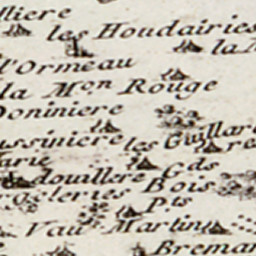 lliere
les Houdairies
la
l'Ormeau
la M.on Rouge
Doniniere
ussiniere les Guillar
arie
G.ds
douillere Bois
leries
P.ts
Vau Martin
Breman